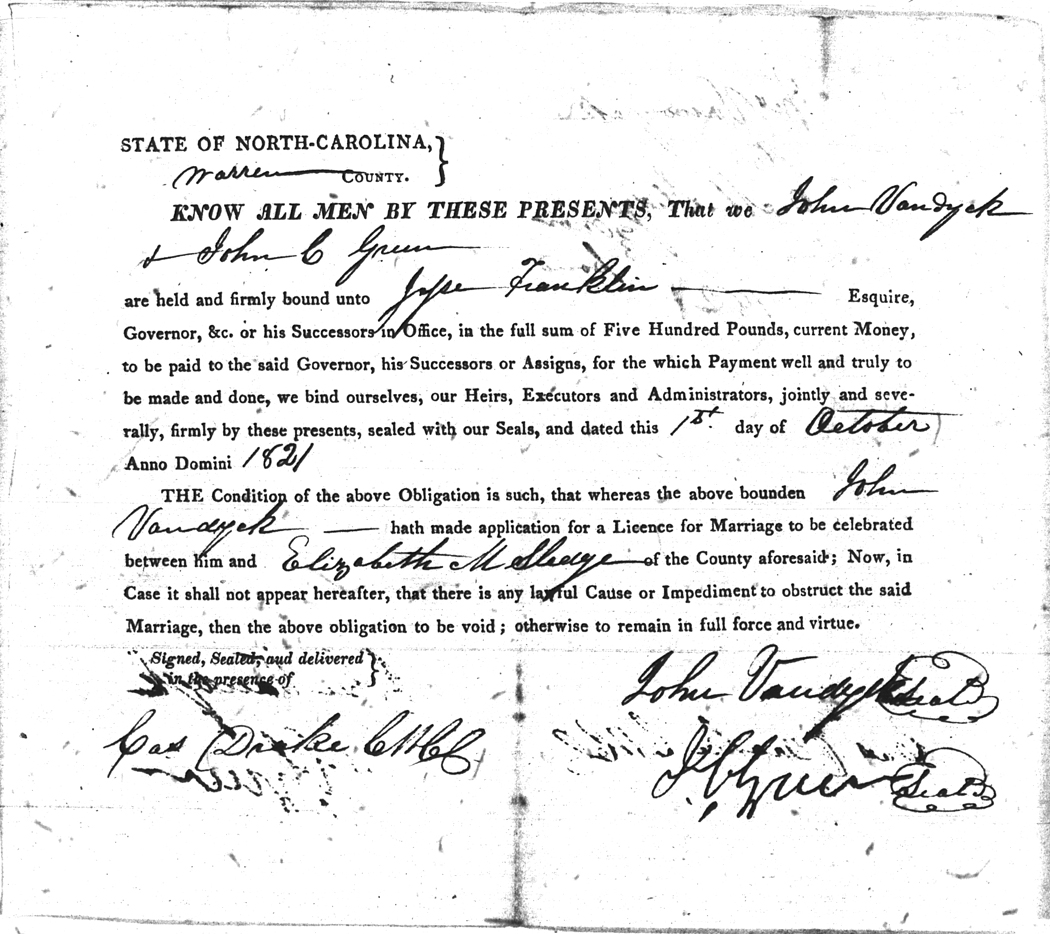 STATE OF NORTH-CAROLINA,
Warren COUNTY.
KNOW ALL MEN BY THESE PRESENTS, That we John Vandyck
& John C Green
are held and firmly bound unto Jesse Franklin Esquire,
Governor, &c. or his Successors in Office, in the full sum of Five Hundred Pounds, current Money,
to be paid to the said Governor, his Successors or Assigns, for the which Payment well and truly to
be made and done, we bind ourselves, our Heirs, Executors and Administrators, jointly and seve-
rally, firmly by these presents, sealed with our Seals, and dated this 1st. day of October
Anno Domini 1821
THE Condition of the above Obligation is such, that whereas the above bounden John
Vandyck — hath made application for a Licence for Marriage to be celebrated
between him and Elizabeth M Sledge of the County aforesaid; Now, in
Case it shall not appear hereafter, that there is any lawful Cause or Impediment to obstruct the said
Marriage, then the above obligation to be void; otherwise to remain in full force and virtue.
Signed, Sealed, and delivered
in the presence of
John Vandyck Seal
Cas Drake CWCC
J C Green Seal